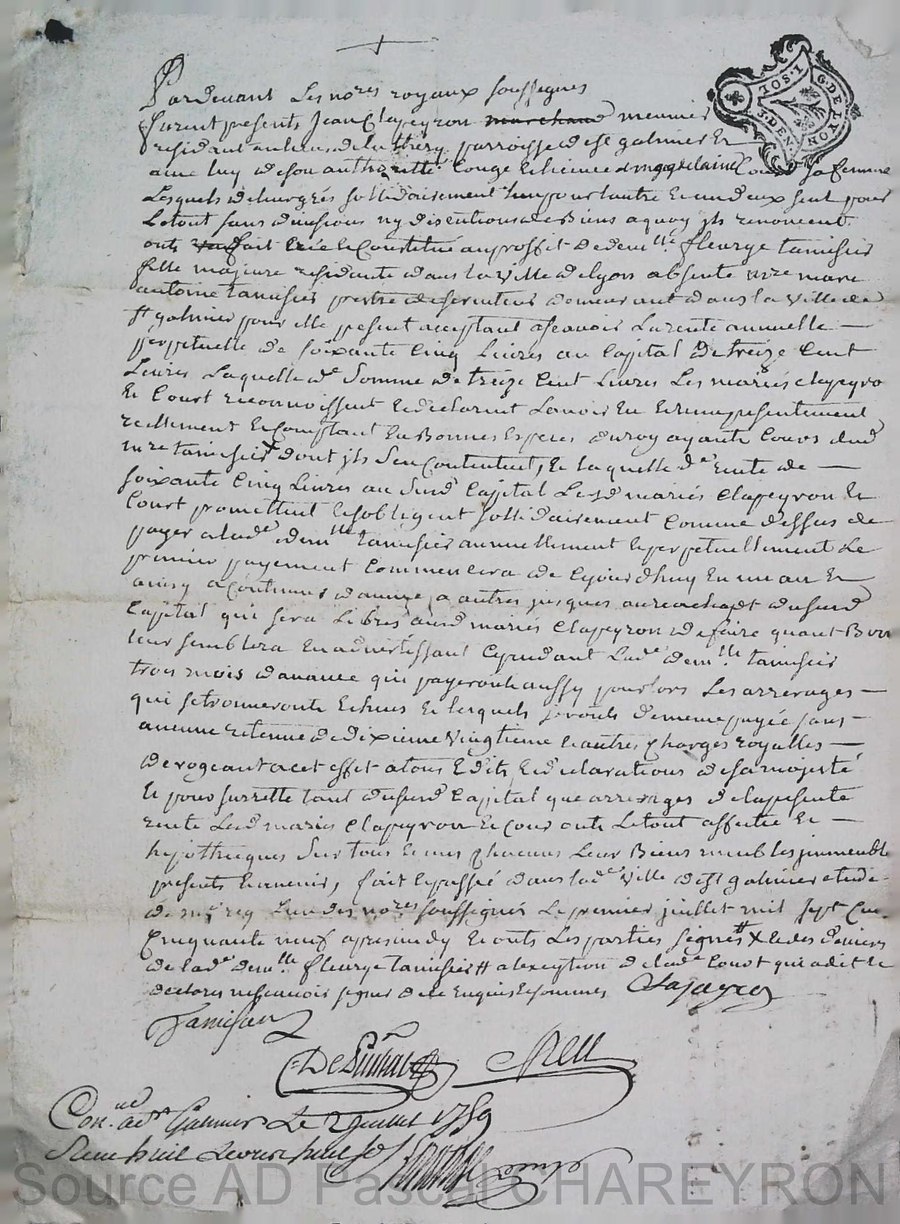 G. DE LYON
2 SOLS
Pardevant Les no.res royaux soussignes
furent presents Jean Clapeyron marchand meunier
résidant au lieu de parroisse de st galmier Et
de luy deson authorité Congé Et licence magdelaine Court Sa femme
Lesquels de leurs grés sollidairement Lun pour lautre Et un deux seul pour
Letout sans division ny discution de Biens aquoy ils renoncent
onts fait Crée et Constitué au proffit de dem.lle fleurye tamisier
fille majeure résidante dans la ville de lyon absente m.re marc
antoine tamisier demeurant dans la ville de
st galmier pour elle présent acceptant ascavoir La rente annuelle
perpetuelle de soixante Cinq Livres au Capital de treize Cent
Livres Laquelle d.e Somme de treize Cent Livres Les mariés clapeyro
Et Court reconnoissent Et déclarent avoir Eu Et reçu présentement
réellement Et Comptant En Bonnes Espèces du roy ayants Cours dud
m.re tamisier dont ils sen Contentent, Et laquelle d.e rente de
soixante Cinq Livres au Susd Capital Lesd mariés Clapeyron Et
Court promettent Et sobligent sollidairement Comme dessus de
payer a lad.e dem.lle tamisier annuellement Et perpetuellement Le
premier payement Commencera de Cejourdhuy En un an Et
ainsy a Continuer dannée a autres jusques au rachapt dususd
Capital qui sera Libres ausd mariés Clapeyron de faire quant Bon
leur semblera En advertissant Cependant Lad.e dem.lle tamisier
trois mois davance qui payeront aussy pour lors Les arrérages
qui se trouveronts Echeus Et lesquels seronts de meme payés sans
aucune retenue de dixieme vingtieme Et autres Charges royalles
derogeant a cet effet a tous Edits Et déclarations de sa majesté
Et pour surretté tant dususd Capital que arrerages de la présente
rente Lesd mariés Clapeyron Et Cour onts Letout affecté Et
hypothequés Sur tous Et uns Chacuns Leur Biens meubles immeuble
présents Et avenir, fait Et passé dans lad.e ville de st galmier etude
de Lun des no.res soussignés Le premier juillet mil Sept Cen
Cinquante neuf apres midy Et onts Les parties signés # X et des deniers
de lad.e dem.lle fleurye tamisier # a lexception de lad.e Court qui a dit et
déclaré ne scavoir signer de Ce Enquise Et sommée Clapeyron
Tamisier
Con.lé a st Galmier Le 2 juillet 1759
Source AD Pascal CHAREYRON